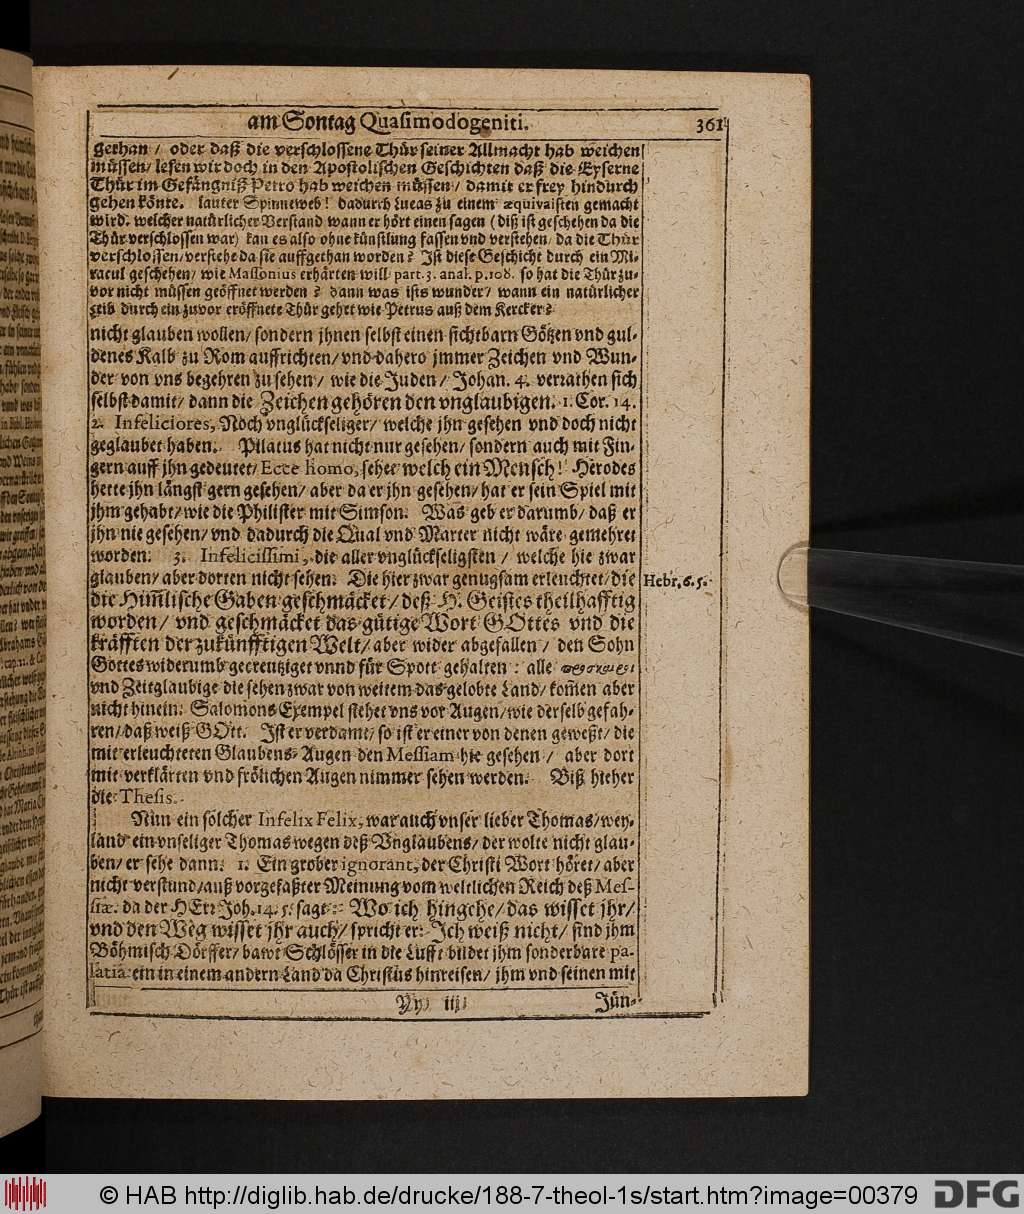 am Sontag Quasimodogeniti. 361
gethan / oder daß die verschlossene Thür seiner Allmacht hab weichen
müssen/ lesen wir doch in den Apostolischen Geschichten daß die Eyserne
Thür im Gefängniß Petro hab weichen müssen/ damit er frey hindurch
gehen könte. lauter Spinneweb! dadurch Lucas zu einem æquivaisten gemacht
wird. welcher natürlicher Verstand wann er hört einen sagen (diß ist geschehen da die
Thür verschlossen war) kan es also ohne künstlung fassen vnd verstehen/ da die Thür
verschlossen/ verstehe da sie auffgethan worden? Ist diese Geschicht durch ein Mi-
racul geschehen/ wie Massonius erhärten will part. 3. anal. p. 108. so hat die Thür zu-
vor nicht müssen geöffnet werden? dann was ists wunder/ wann ein natürlicher
Leib durch ein zuvor eröffnete Thür gehet wie Petrus auß dem Kercker?
nicht glauben wollen/ sondern jhnen selbst einen sichtbarn Götzen vnd gul-
denes Kalb zu Rom auffrichten/ vnd dahero jmmer Zeichen vnd Wun-
der von vns begehren zu sehen/ wie die Juden/ Johan. 4. verrathen sich
selbst damit/ dann die Zeichen gehören den vnglaubigen. 1. Cor. 14.
2. Infeliciores, Noch vnglückseliger/ welche jhn gesehen vnd doch nicht
geglaubet haben. Pilatus hat nicht nur gesehen/ sondern auch mit Fin-
gern auff jhn gedeutet/ Ecce homo, sehet welch ein Mensch! Herodes
hette jhn längst gern gesehen/ aber da er jhn gesehen/ hat er sein Spiel mit
jhm gehabt/ wie die Philister mit Simson. Was geb er darumb/ daß er
jhn nie gesehen/ vnd dadurch die Qual vnd Marter nicht wäre gemehret
worden. 3. Infelicissimi, die aller vnglückseligsten / welche hie zwar
glauben/ aber dorten nicht sehen. Die hier zwar genugsam erleuchtet/ die
Hebr. 6. 5.
die Him̃lische Gaben geschmäcket/ deß H. Geistes theilhafftig
worden/ vnd geschmäcket das gütige Wort GOttes vnd die
kräfften der zukünfftigen Welt/ aber wider abgefallen / den Sohn
Gottes widerumb gecreutziget vnnd für Spott gehalten: alle
vnd Zeitglaubige die sehen zwar von weitem das gelobte Land/ kom̃en aber
nicht hinein. Salomons Exempel stehet vns vor Augen/ wie derselb gefah-
ren/ daß weiß GOtt. Ist er verdamt/ so ist er einer von denen geweßt/ die
mit erleuchteten Glaubens-Augen den Messiam hie gesehen / aber dort
mit verklärten vnd frölichen Augen nimmer sehen werden. Biß hieher
die Thesis.
Nun ein solcher Infelix Felix, war auch vnser lieber Thomas/ wey-
land ein vnseliger Thomas wegen deß Vnglaubens/ der wolte nicht glau-
ben/ er sehe dann. 1. Ein grober ignorant, der Christi Wort höret/ aber
nicht verstund/ auß vorgefaßter Meinung vom weltlichen Reich deß Mes-
siæ. da der HErr Joh. 14. 5. sagt: Wo ich hingehe/ das wisset jhr/
vnd den Weg wisset jhr auch/ spricht er: Ich weiß nicht/ sind jhm
Böhmisch Dörffer/ bawt Schlösser in die Lufft bildet jhm sonderbare pa-
latia ein in einem andern Land da Christus hinreisen/ jhm vnd seinen mit
Yy iij Jün-
© HAB http://diglib.hab.de/drucke/188-7-theol-1s/start.htm?image=00379 DFG